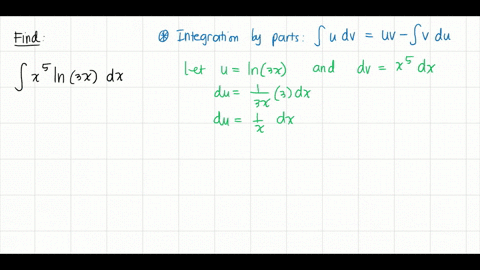 Find:
∫ x⁵ ln (3x) dx
⊛ Integration by parts: ∫ u dv = uv − ∫ v du
Let u = ln(3x) and dv = x⁵ dx
du = 1/3x (3) dx
du = 1/x dx